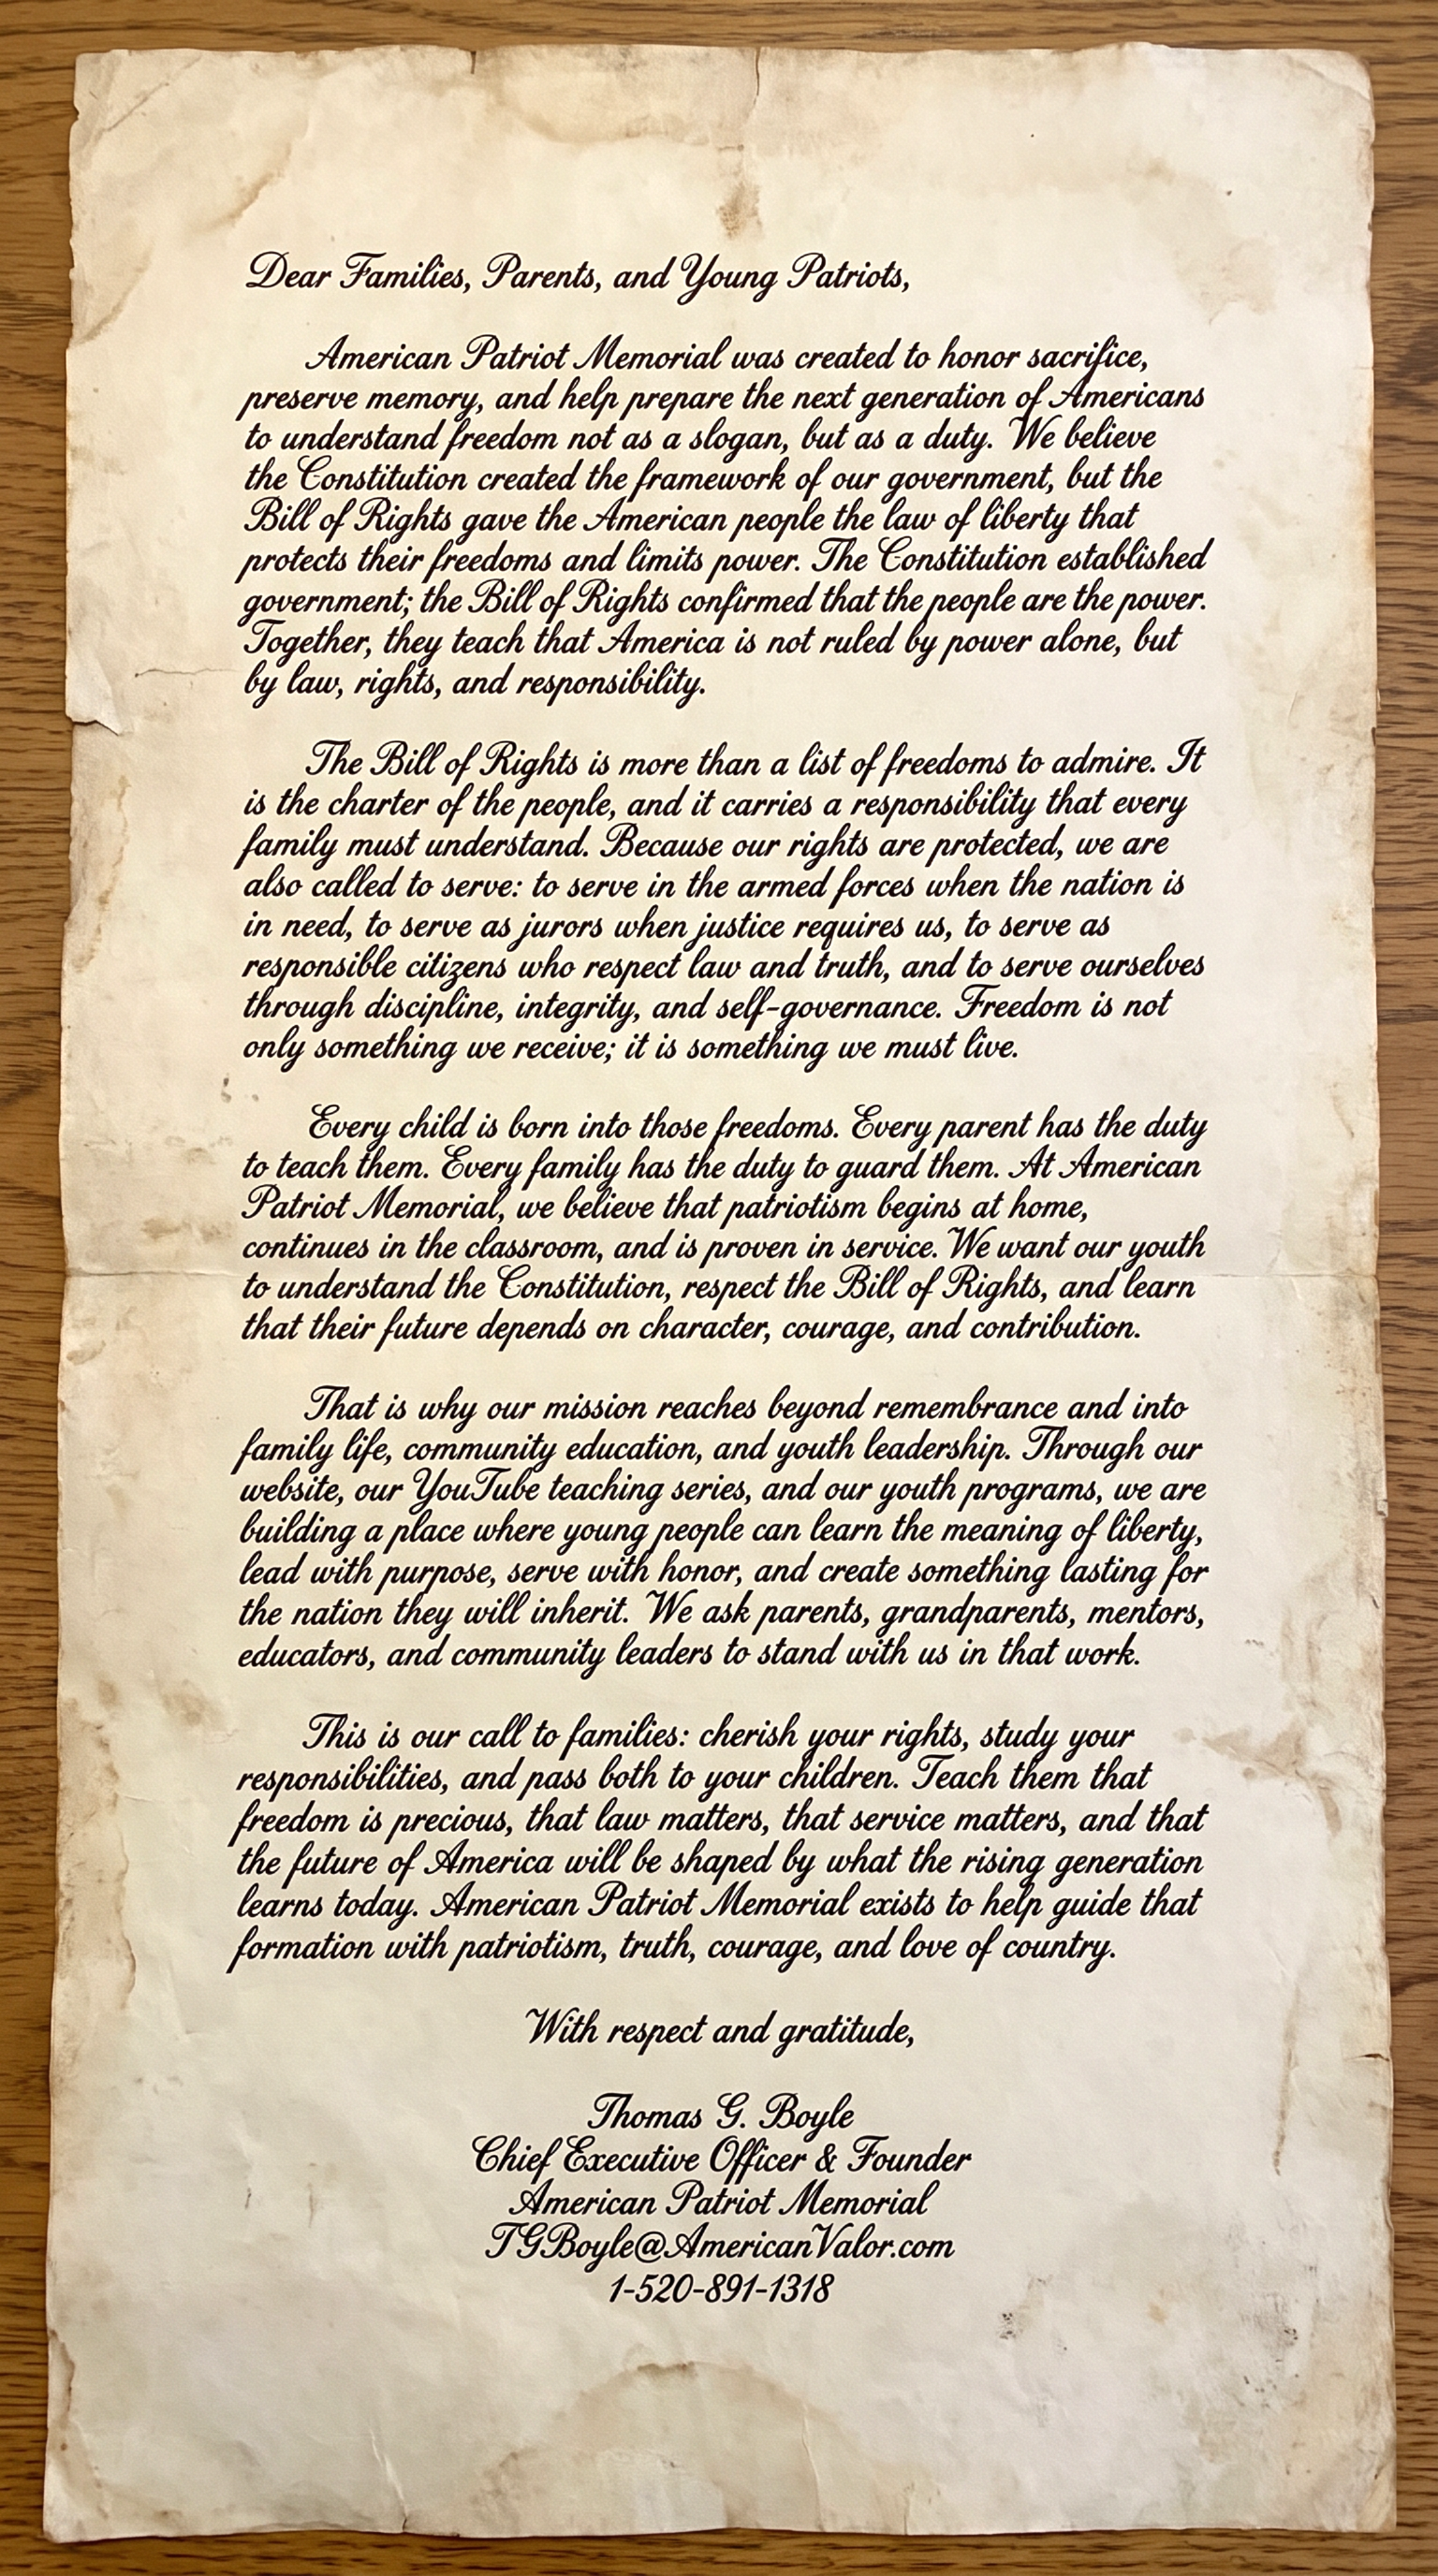 Dear Families, Parents, and Young Patriots,
American Patriot Memorial was created to honor sacrifice,
preserve memory, and help prepare the next generation of Americans
to understand freedom not as a slogan, but as a duty. We believe
the Constitution created the framework of our government, but the
Bill of Rights gave the American people the law of liberty that
protects their freedoms and limits power. The Constitution established
government; the Bill of Rights confirmed that the people are the power.
Together, they teach that America is not ruled by power alone, but
by law, rights, and responsibility.
The Bill of Rights is more than a list of freedoms to admire. It
is the charter of the people, and it carries a responsibility that every
family must understand. Because our rights are protected, we are
also called to serve: to serve in the armed forces when the nation is
in need, to serve as jurors when justice requires us, to serve as
responsible citizens who respect law and truth, and to serve ourselves
through discipline, integrity, and self-governance. Freedom is not
only something we receive; it is something we must live.
Every child is born into those freedoms. Every parent has the duty
to teach them. Every family has the duty to guard them. At American
Patriot Memorial, we believe that patriotism begins at home,
continues in the classroom, and is proven in service. We want our youth
to understand the Constitution, respect the Bill of Rights, and learn
that their future depends on character, courage, and contribution.
That is why our mission reaches beyond remembrance and into
family life, community education, and youth leadership. Through our
website, our YouTube teaching series, and our youth programs, we are
building a place where young people can learn the meaning of liberty,
lead with purpose, serve with honor, and create something lasting for
the nation they will inherit. We ask parents, grandparents, mentors,
educators, and community leaders to stand with us in that work.
This is our call to families: cherish your rights, study your
responsibilities, and pass both to your children. Teach them that
freedom is precious, that law matters, that service matters, and that
the future of America will be shaped by what the rising generation
learns today. American Patriot Memorial exists to help guide that
formation with patriotism, truth, courage, and love of country.
With respect and gratitude,
Thomas G. Boyle
Chief Executive Officer & Founder
American Patriot Memorial
TGBoyle@AmericanValor.com
1-520-891-1318